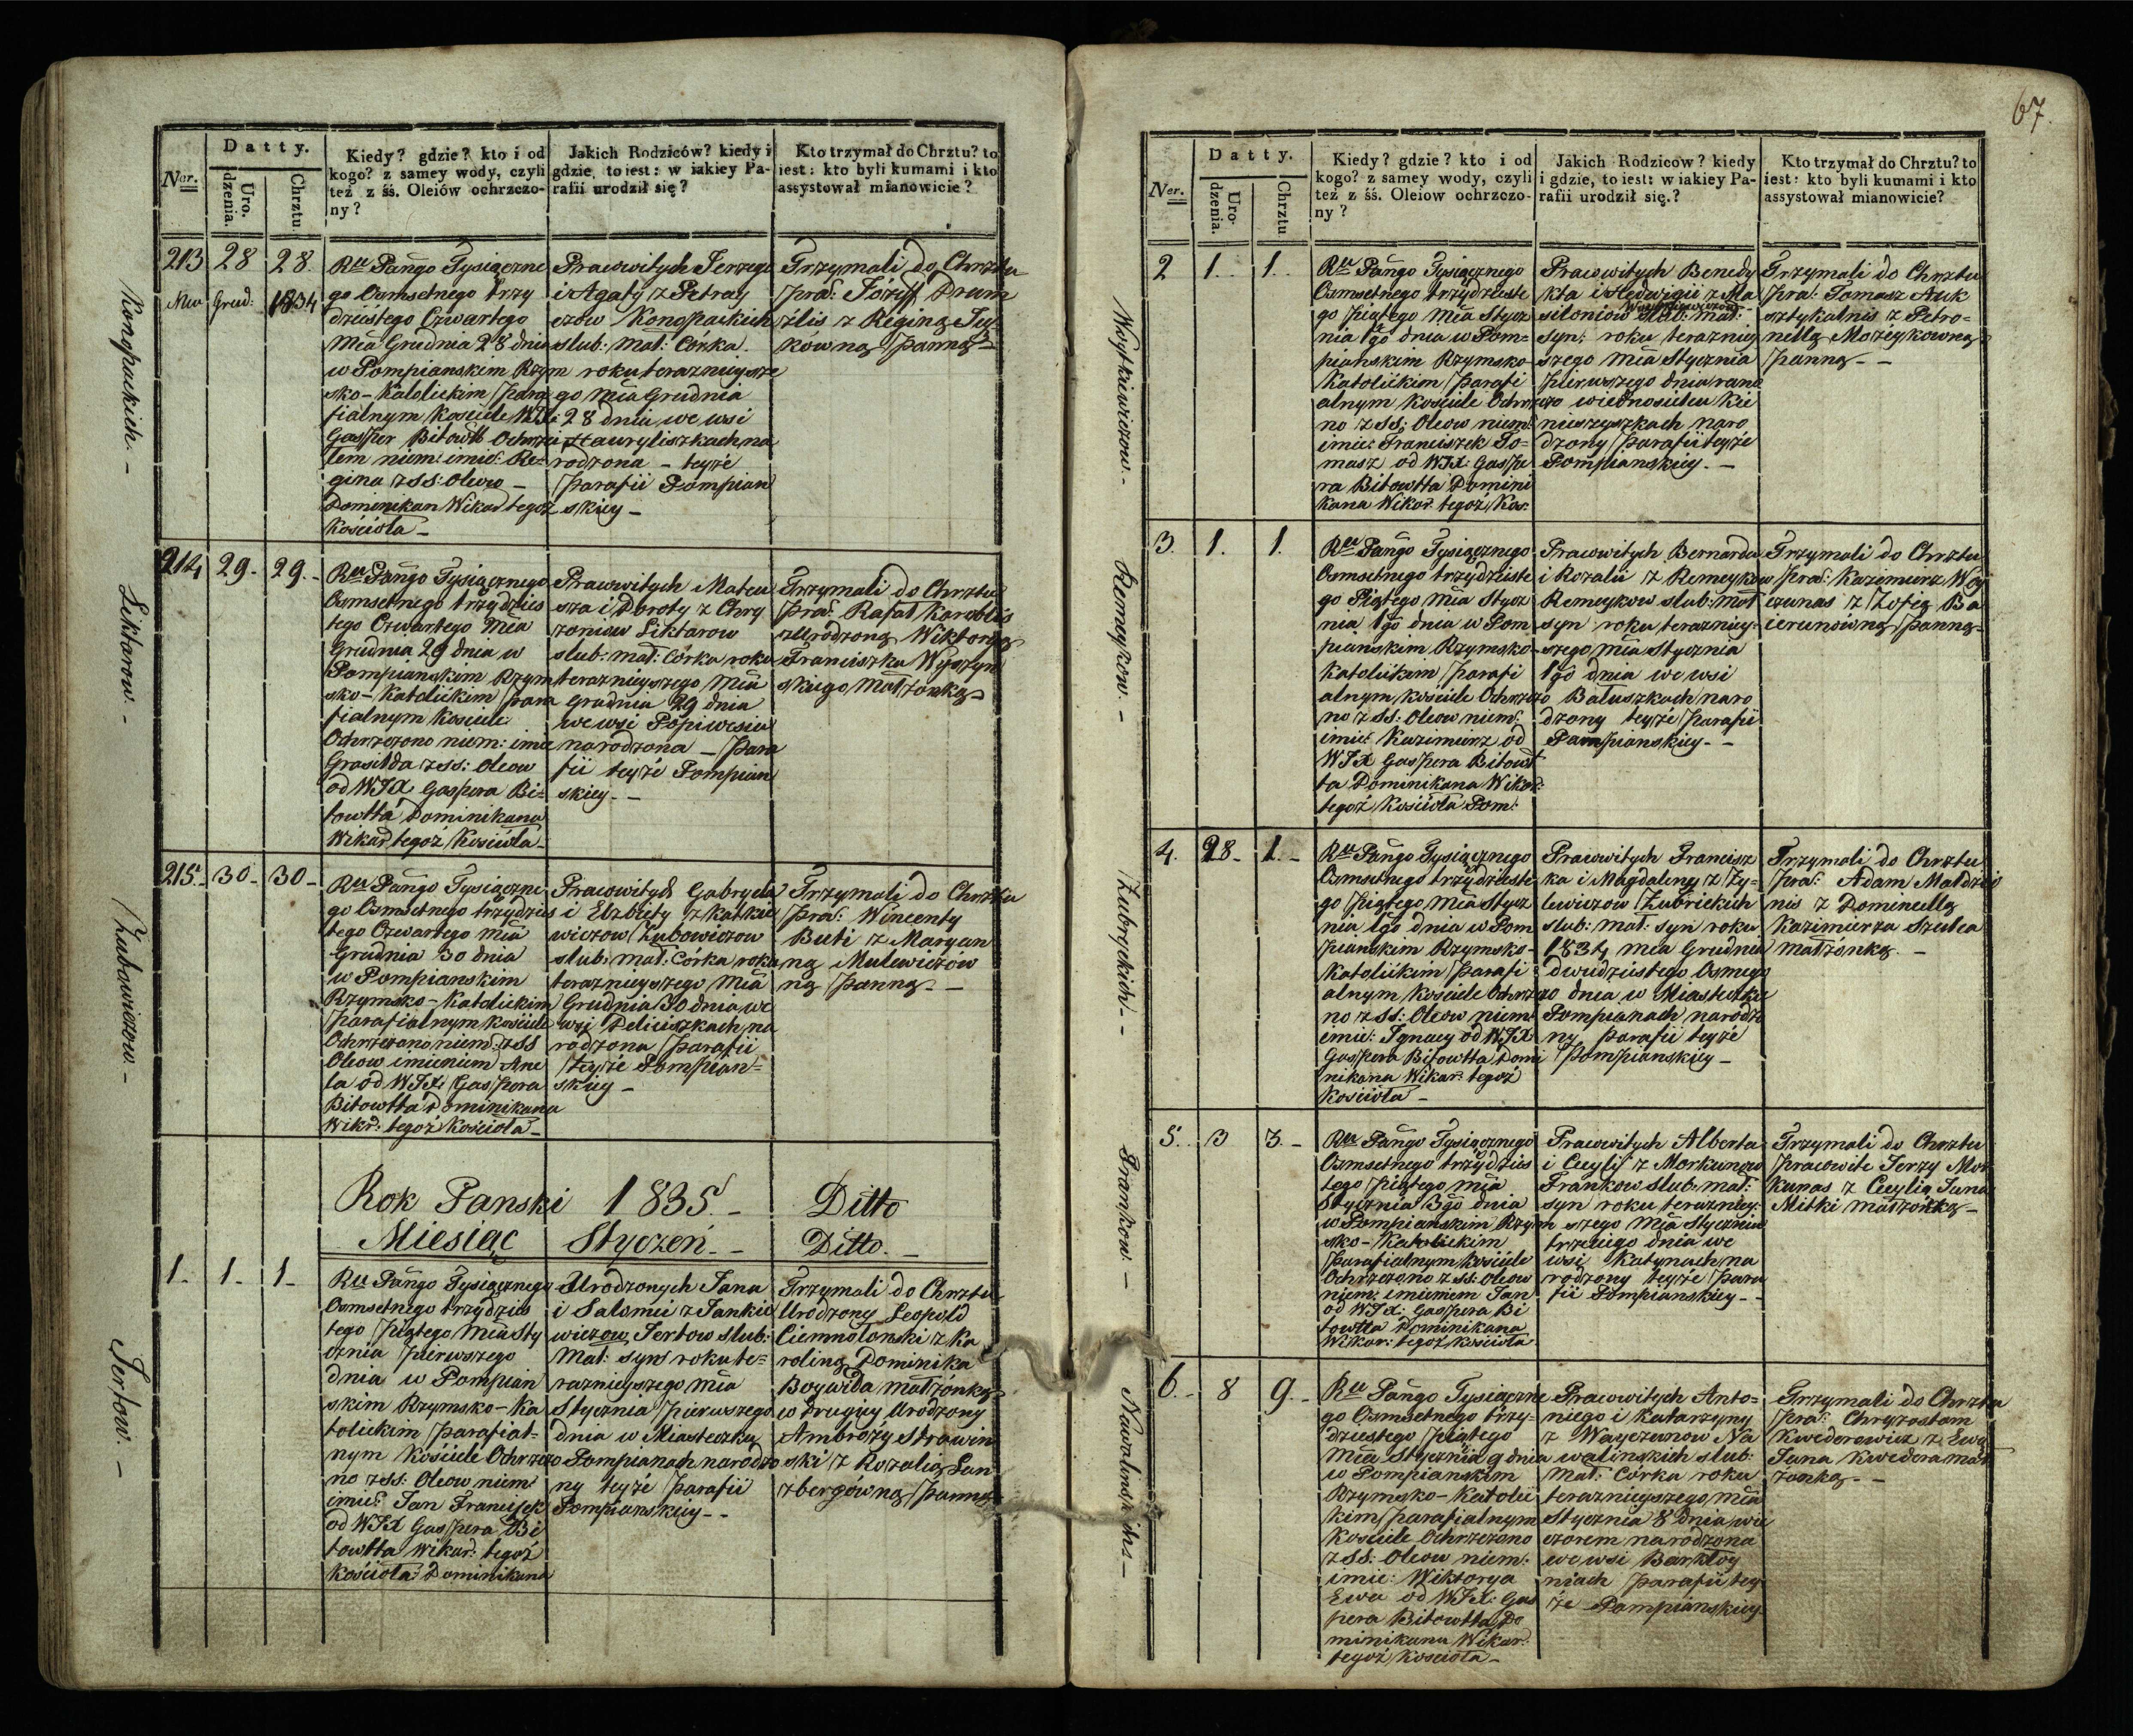 Ner.
Datty.
Uro.
dzenia.
Chrztu
Kiedy? gdzie? kto i od
kogo? z samey wody, czyli
też z śś. Oleiów ochrzczo-
ny?
Jakich Rodziców? kiedy i
gdzie, to iest: w iakiey Pa-
rafii urodził się?
Kto trzymał do Chrztu? to
iest: kto byli kumami i kto
assystował mianowicie?
Konopackich.-
213 28 28.
Mca Grud: 1834
Ru Pango Tysiączne
go Osmsetnego trzy
dziestego Czwartego
Mca Grudnia 28 dnia
w Pompianskim Rzym
sko-Katolickim para
fialnym Kosciele WJX:
Gasper Bitowtt Ochrzcił
Tem niem: imie: Re-
gina z SS: Oleow -
Dominikan Wikar tegoż
Kościoła -
Prawowitych Jerzego
i Agaty z Petray
czow Konopackich
slub: Mał: Corka.
roku teraznieysze
go Mca Grudnia
28 dnia we wsi
Stauryliszkach na
rodzona - teyże
parafii Pompian
skiey -
Trzymali do Chrztu
pra: Józeff Drum
źlis z Reginą Ju
kowną panną -
Liktarow.-
214 29- 29.-
Ru Pango Tysiącznego
Osmsetnego trzydzies
tego Czwartego Mca
Grudnia 29 dnia w
Pompianskim Rzym
sko-Katolickim para
fialnym Kosciele
Ochrzczono niem: imie
Grasilda z SS: Oleow
od WJX Gaspera Bi-
towtta Dominikana
Wikar tegoż Kosciola -
Prawowitych Mateu
sza i Doroty z Chry
zoniow Liktarow
slub: mał: Corka roku
teraznieyszego Mca
Grudnia 29 dnia
we wsi Popiwesiu
narodzona - para
fii teyże Pompian
skiey. -
Trzymali do Chrztu
pra: Rafał Karoblis
z Urodzoną Wiktoryą
Franciszka Wyszyn
skiego Małżonką -
Zubowiczow.-
215.- 30- 30-
Ru Pango Tysiączne
go Osmsetnego trzydzies
tego Czwartego Mca
Grudnia 30 dnia
w Pompianskim
Rzymsko-Katolickim
parafialnym kosciele
Ochrzczono niem: z SS
Oleow imieniem Ane
la od WJX: Gaspera
Bitowtta Dominikana
Wikr: tegoż Kościoła -
Prawowitych Gabryela
i Elzbiety z Katkie
wiczow Zubowiczow
slub: mał: Corka roku
teraznieyszego Mca
Grudnia 30 dnia we
wsi Deliuszkach na
rodzona parafii
teyże Pompian-
skiey -
Trzymali do Chrztu
pra: Wincenty
Buti z Maryan
ną Mulewiczów
ną panną - -
Rok Panski 1835.- Ditto
Miesiąc Styczeń.- Ditto.-
Jertow.-
1- 1- 1-
Ru Pango Tysiącznego
Osmsetnego trzydzies
tego piątego Mca Sty
cznia pierwszego
dnia w Pompian
skim Rzymsko-Ka
tolickim parafial-
nym Kościele Ochrzczo
no z SS: Oleow niem:
imie: Jan Franciszek
od WJX Gaspera Bi
towtta Wikar: tegoż
Kościoła Dominikana
Urodzonych Jana
i Salomei z Jankie
wiczow Jertow slub:
Mał: syn roku te-
raznieyszego Mca
Stycznia pierwszego
dnia w Miasteczku
Pompianach narodzo
ny teyże parafii
Pompianskiey - -
Trzymali do Chrztu
Urodzony Leopold
Ciemnolonski z Ka
roliną Dominika
Boywida małżonką
w drugiey Urodzony
Ambroży Strawin
ski z Rozalią Lan
zbergówną panną
67.
Ner.
Datty.
Uro-
dzenia.
Chrztu
Kiedy? gdzie? kto i od
kogo? z samey wody, czyli
też z śś. Oleiow ochrzczo-
ny?
Jakich Rodzicow? kiedy
i gdzie, to iest: w iakiey Pa-
rafii urodził się.?
Kto trzymał do Chrztu? to
iest: kto byli kumami i kto
assystował mianowicie?
Woytkiewiczow.-
2 1.. 1..
Ru Pango Tysiącznego
Osmsetnego trzydzieste
go piątego Mca Stycz
nia 1go dnia w Pom-
pianskim Rzymsko-
Katolickim parafi
alnym Kosciele Ochrzczo
no z SS: Oleow niem:
imie: Franciszek To-
masz od WJX: Gaspe
ra Bitowtta Domini
kana Wikar: tegoż Kos:
Prawowitych Benedy
kta i Hedwigii z Ma
siloniow Woytkiewiczow slub: mał:
syn: roku terazniey
szego Mca Stycznia
pierwszego dnia rano
w iednosielu Kie
nieszyszkach naro
dzony parafii teyże
Pompianskiey. -
Trzymali do Chrztu
pra: Tomasz Auk
sztykalnis z Petro-
nellą Mozeykowną
panną - -
Remeykow.-
3. 1. 1.
Ru Pango Tysiącznego
Osmsetnego trzydzieste
go Piątego Mca Stycz
nia 1go dnia w Pom
pianskim Rzymsko-
Katolickim parafi
alnym kosciele Ochrzczo
no z SS: Oleow niem:
imie: Kazimierz od
WJX Gaspera Bitowt
ta Dominikana Wikar:
tegoż Kościoła Pom:
Prawowitych Bernarda
i Rozalii z Remeykow
Remeykow slub: mał
syn roku terazniey-
szego Mca Stycznia
1go dnia we wsi
Baluszkach naro
dzony teyże parafii
Pompianskiey - -
Trzymali do Chrztu
pra: Kazimierz Woy
czunas z Zofią Ba
cierunówną panną -
Zubryckich.-
4. 28- 1.-
Ru Pango Tysiącznego
Osmsetnego trzydzieste
go piątego Mca Stycz
nia 1go dnia w Pom
pianskim Rzymsko-
Katolickim parafi
alnym Kosciele Ochrzczo
no z SS: Oleow niem:
imie: Ignacy od WJX:
Gaspera Bitowtta Domi
nikana Wikar: tegoż
Kościoła -
Prawowitych Francisz
ka i Magdaleny z Zy-
lewiczow Zubrickich
slub: mał: syn roku
1834 Mca Grudnia
dwudziestego Osmego
dnia w Miasteczku
Pompianach narodzo
ny parafii teyże
Pompianskiey -
Trzymali do Chrztu
pra: Adam Matdzio
nis z Domicellą
Kazimierza Szulca
małżonką. -
Frankow.-
5. 3 3.-
Ru Pango Tysiącznego
Osmsetnego trzydzies
tego piątego Mca
Stycznia 3go dnia
w Pompianskim Rzym
sko-Katolickim
parafialnym Kosciele
Ochrzczono z SS: Oleow
niem: imieniem Jan
od WJX: Gaspera Bi
towtta Dominikana
Wikar: tegoż Kościoła
Prawowitych Alberta
i Cecylij z Morkunow
Frankow slub: mał:
syn roku terazniey-
szego Mca Stycznia
trzeciego dnia we
wsi Katynach na
rodzony teyże para
fii Pompianskiey - -
Trzymali do Chrztu
prawowite Jerzy Mor
kunas z Cecylią Jana
Mitki małżonką -
Nawalinskich.-
6.- 8 9.-
Ru Pango Tysiączne
go Osmsetnego trzy-
dziestego piątego
Mca Stycznia 9 dnia
w Pompianskim
Rzymsko-Katolic
kim parafialnym
Kosciele Ochrzczono
z SS: Oleow niem:
imie: Wiktorya
Ewa od WJX: Gas
pera Bitowtta Do
minikana Wikar:
tegoż Kosciola -
Prawowitych Anto-
niego i Katarzyny
z Wayczunow Na
walinskich slub:
Mał: Córka roku
teraznieyszego Mca
Stycznia 8 dnia wie
czorem narodzona
we wsi Barkłoy
niach parafii tey
że Pompianskiey
Trzymali do Chrztu
pra: Chryzostom
Kwederowicz z Ewą
Jana Kwedera mał
żonką. -